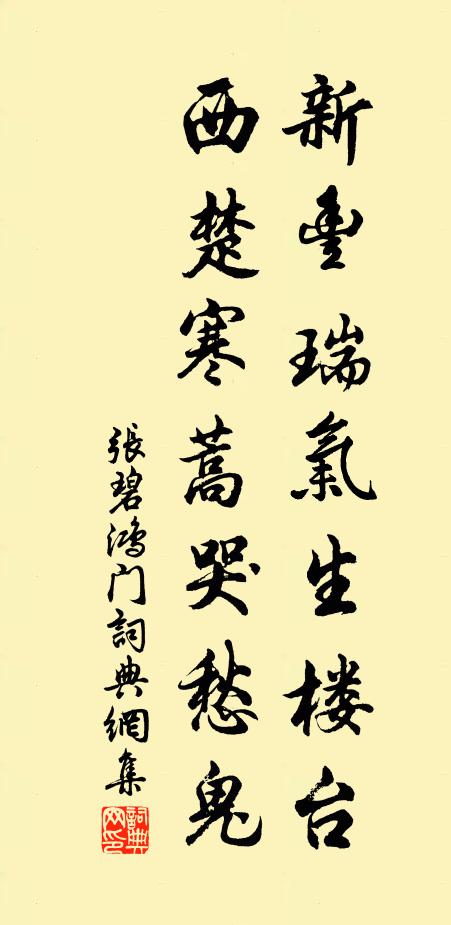 新豐瑞氣生楼台
西楚寒蒿哭愁鬼
張碧鴻门詞典網集
詞典网印